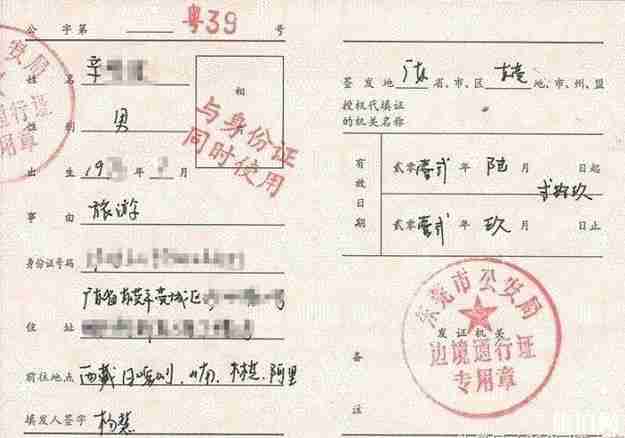 公字第 粤39 号
姓名 辛
性别 男
出生 19 年 月
相
与身份证
同时使用
事由 旅游
身份证号码
广东省东莞市莞城区
住址
前往地点 西藏日喀则、山南、林芝、阿里
填发人签字 杨慧
公安局
通行证
专用章
签发地 广东 省、市、区 东莞 地、市、州、盟
授权代填证
的机关名称
有效日期
贰零壹贰 年 陆 月 贰拾玖 日起
贰零壹贰 年 玖 月 日止
东莞市公安局
发证机关
边境通行证
专用章
备注